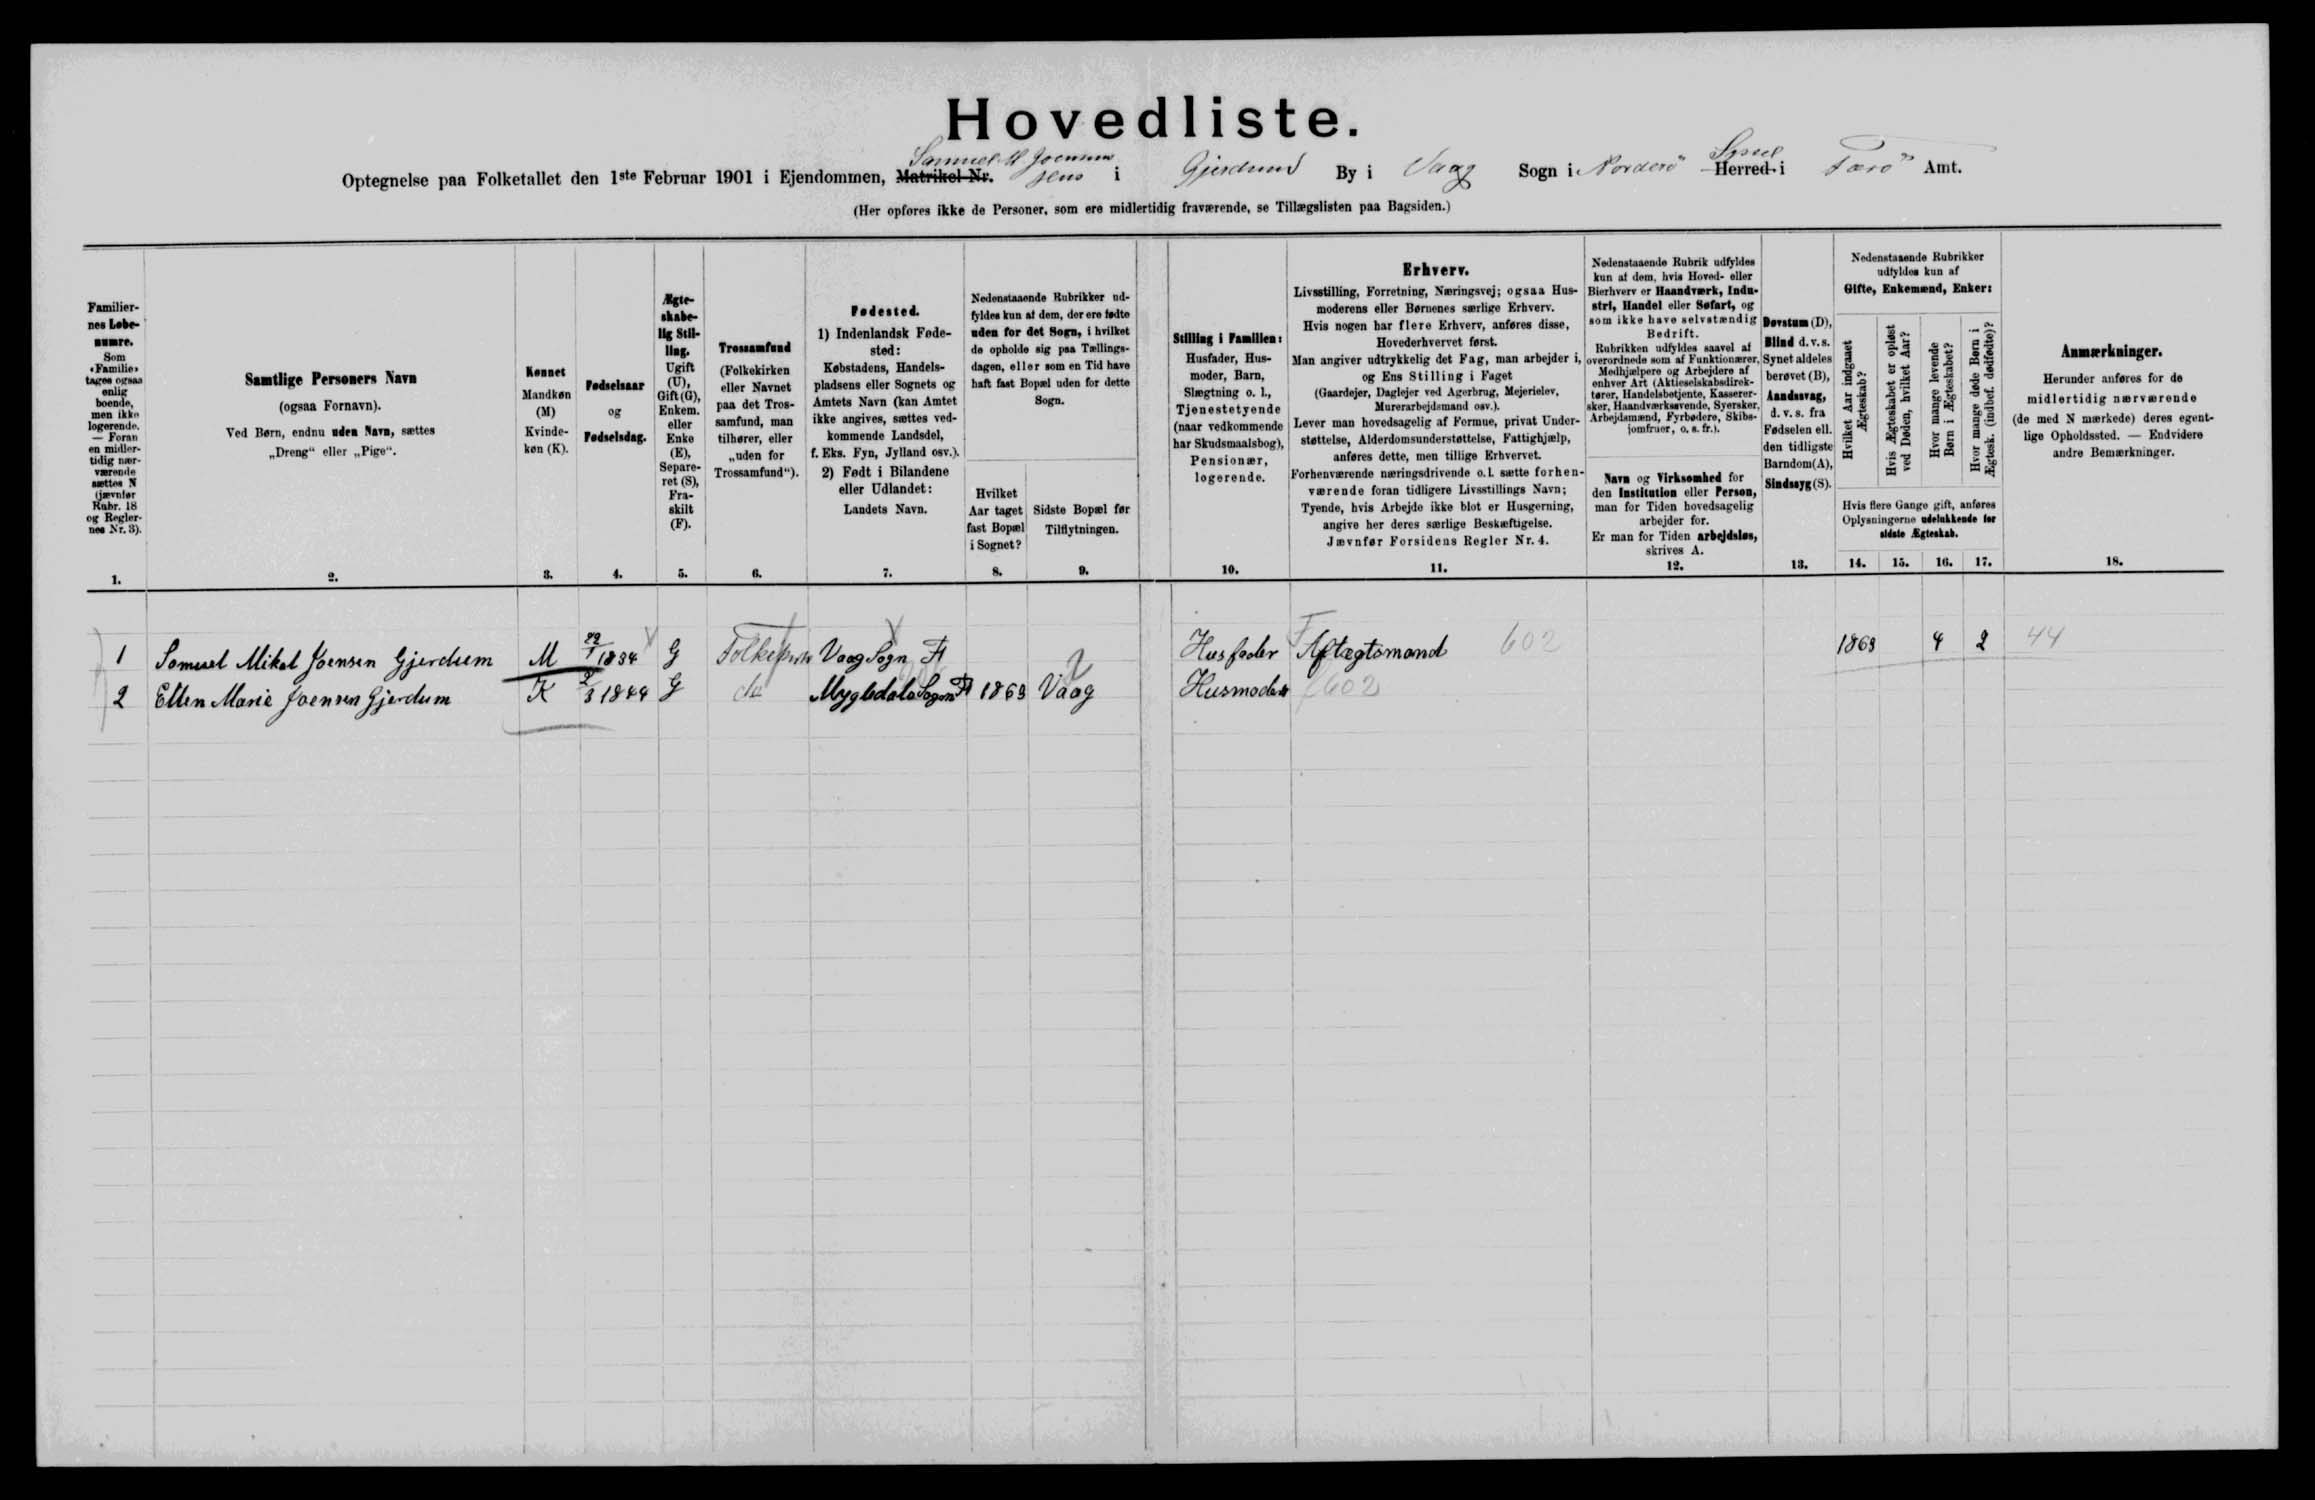 Hovedliste.
Optegnelse paa Folketallet den 1ste Februar 1901 i Ejendommen, Matrikel-Nr. Samuel M. Joensen Hus i Gjerdum By i Vaag Sogn i Norderø Herred Syssel i Færø Amt.
(Her opføres ikke de Personer, som ere midlertidig fraværende, se Tillægslisten paa Bagsiden.)
Familiernes Løbenumre.
Som «Familie» tages ogsaa enlig boende, men ikke logerende. — Foran en midlertidig nærværende sættes N (jævnfør Rubr. 18 og Reglernes Nr. 3).
1.
Samtlige Personers Navn
(ogsaa Fornavn).
Ved Børn, endnu uden Navn, sættes
„Dreng“ eller „Pige“.
2.
Kønnet
Mandkøn
(M)
Kvinde-
køn (K).
3.
Fødselsaar
og
Fødselsdag.
4.
Ægte-
skabe-
lig Stil-
ling.
Ugift
(U),
Gift (G),
Enkem.
eller
Enke
(E),
Separe-
ret (S),
Fra-
skilt
(F).
5.
Trossamfund
(Folkekirken
eller Navnet
paa det Tros-
samfund, man
tilhører, eller
„uden for
Trossamfund“).
6.
Fødested.
1) Indenlandsk Føde-
sted:
Købstadens, Handels-
pladsens eller Sognets og
Amtets Navn (kan Amtet
ikke angives, sættes ved-
kommende Landsdel,
f. Eks. Fyn, Jylland osv.).
2) Født i Bilandene
eller Udlandet:
Landets Navn.
7.
Nedenstaaende Rubrikker ud-
fyldes kun af dem, der ere fødte
uden for det Sogn, i hvilket
de opholde sig paa Tællings-
dagen, eller som en Tid have
haft fast Bopæl uden for dette
Sogn.
Hvilket
Aar taget
fast Bopæl
i Sognet?
8.
Sidste Bopæl før
Tilflytningen.
9.
Stilling i Familien:
Husfader, Hus-
moder, Barn,
Slægtning o. l.,
Tjenestetyende
(naar vedkommende
har Skudsmaalsbog),
Pensionær,
logerende.
10.
Erhverv.
Livsstilling, Forretning, Næringsvej; ogsaa Hus-
moderens eller Børnenes særlige Erhverv.
Hvis nogen har flere Erhverv, anføres disse,
Hovederhvervet først.
Man angiver udtrykkelig det Fag, man arbejder i,
og Ens Stilling i Faget
(Gaardejer, Daglejer ved Agerbrug, Mejerielev,
Murerarbejdsmand osv.).
Lever man hovedsagelig af Formue, privat Under-
støttelse, Alderdomsunderstøttelse, Fattighjælp,
anføres dette, men tillige Erhvervet.
Forhenværende næringsdrivende o. l. sætte forhen-
værende foran tidligere Livsstillings Navn;
Tyende, hvis Arbejde ikke blot er Husgerning,
angive her deres særlige Beskæftigelse.
Jævnfør Forsidens Regler Nr. 4.
11.
Nedenstaaende Rubrik udfyldes
kun af dem, hvis Hoved- eller
Bierhverv er Haandværk, Indu-
stri, Handel eller Søfart, og
som ikke have selvstændig
Bedrift.
Rubrikken udfyldes saavel af
overordnede som af Funktionærer,
Medhjælpere og Arbejdere af
enhver Art (Aktieselskabsdirek-
tører, Handelsbetjente, Kasserer-
sker, Haandværkssvende, Syersker,
Arbejdsmænd, Fyrbødere, Skibs-
jomfruer, o. s. fr.).
Navn og Virksomhed for
den Institution eller Person,
man for Tiden hovedsagelig
arbejder for.
Er man for Tiden arbejdsløs,
skrives A.
12.
Døvstum (D),
Blind d. v. s.
Synet aldeles
berøvet (B),
Aandssvag,
d. v. s. fra
Fødselen ell.
den tidligste
Barndom (A),
Sindssyg (S).
13.
Nedenstaaende Rubrikker
udfyldes kun af
Gifte, Enkemænd, Enker:
Hvilket Aar indgaaet
Ægteskab?
Hvis Ægteskabet er opløst
ved Døden, hvilket Aar?
Hvor mange levende
Børn i Ægteskabet?
Hvor mange døde Børn i
Ægtesk. (indbef. dødfødte)?
Hvis flere Gange gift, anføres
Oplysningerne udelukkende for
sidste Ægteskab.
14. 15. 16. 17.
Anmærkninger.
Herunder anføres for de
midlertidig nærværende
(de med N mærkede) deres egent-
lige Opholdssted. — Endvidere
andre Bemærkninger.
18.
1 Samuel Mikal Joensen Gjerdum M 1834 G Folkekirke Vaag Sogn F Husfader Aftægtsmand 602 1869 4 2 44
2 Ellen Marie Joensen Gjerdum K 2/3 1844 G do Mygledals Sogn F 1869 Vaag Husmoder 602